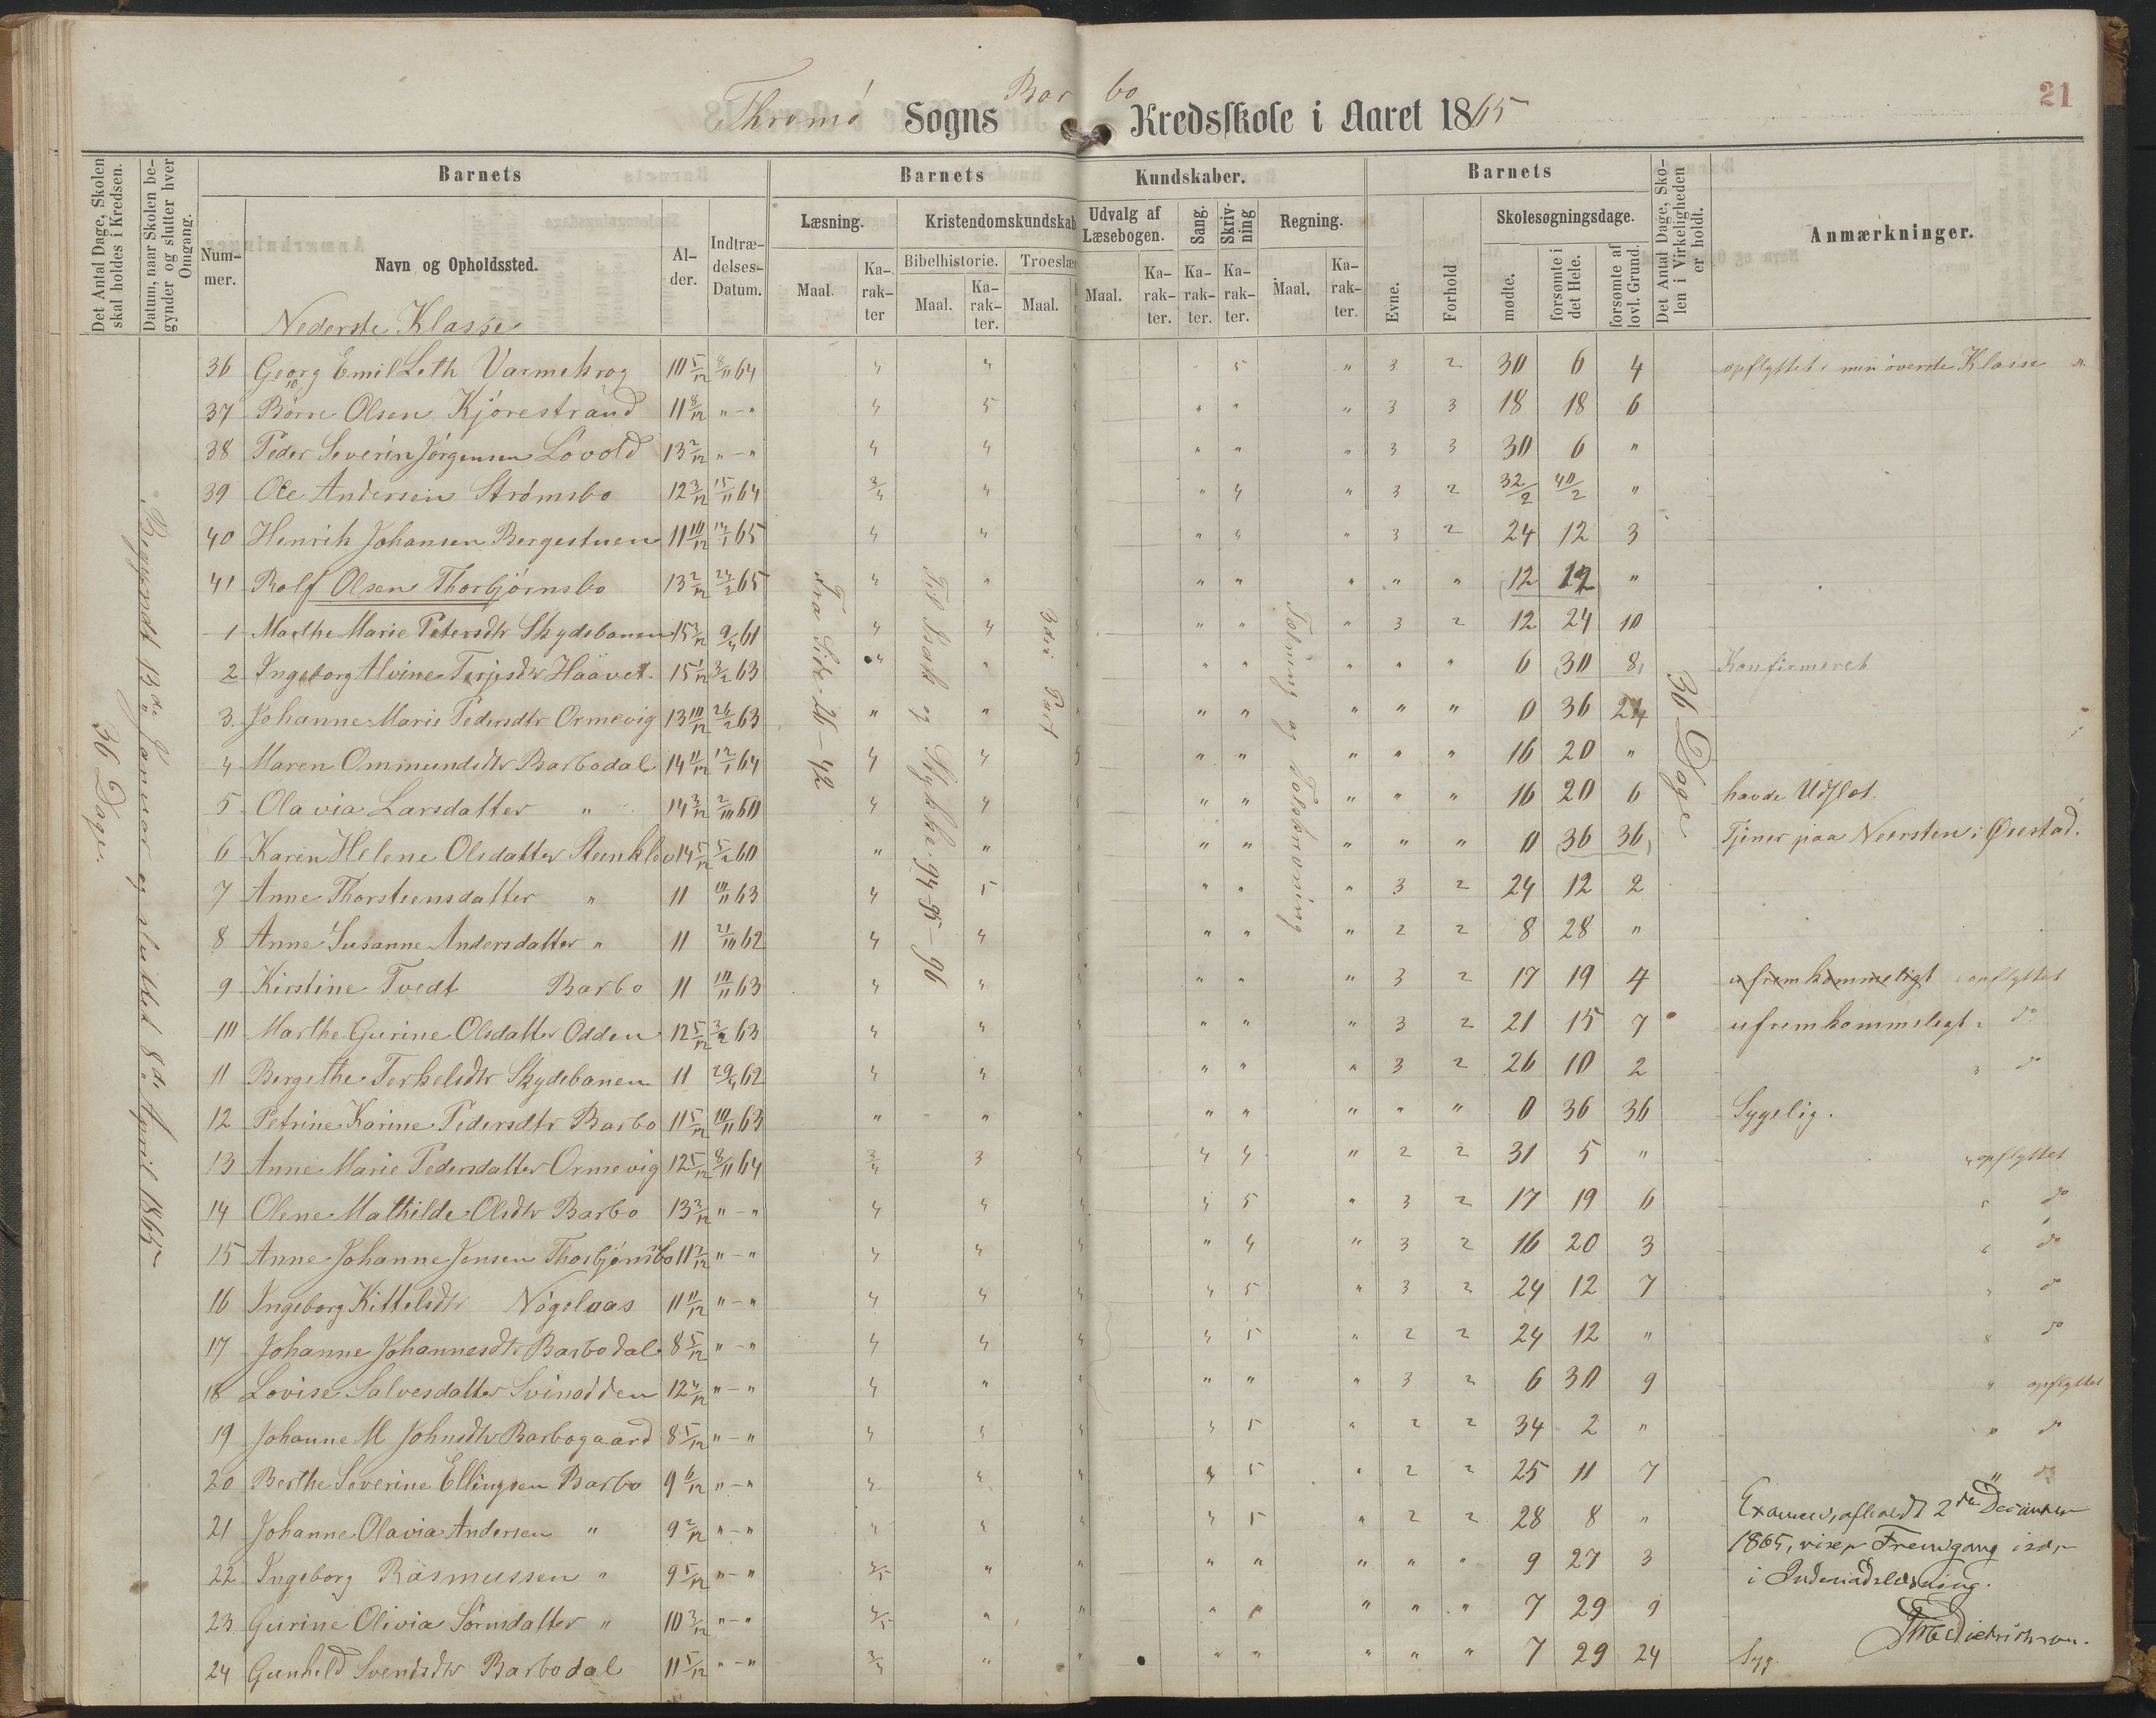 21
Thromø Sogns Barbo Kredsskole i Aaret 1865
Det Antal Dage, Skolen skal holdes i Kredsen.
Datum, naar Skolen begynder og slutter hver Omgang.
Barnets
Nummer.
Navn og Opholdssted.
Alder.
Indtrædelses-Datum.
Barnets Kundskaber.
Læsning.
Maal.
Karakter
Kristendomskundskab
Bibelhistorie.
Maal.
Karakter.
Troeslær
Maal.
Udvalg af Læsebogen.
Maal.
Karakter.
Sang.
Karakter.
Skrivning
Karakter.
Regning.
Maal.
Karakter.
Barnets
Evne.
Forhold
Skolesøgningsdage.
mødte.
forsømte i det Hele.
forsømte af lovl. Grund.
Det Antal Dage, Skolen i Virkeligheden er holdt.
Anmærkninger.
Nederste Klasse
36 Dage.
Begyndt 13de Januar og sluttet 8de April 1865
Fra Side 26-42
Til Isak og Stykke 94-95-96
3die Part
Tælning og Talskrivning
36 Dage
36 Georg Emil Leth Varmekrog 10 5/12 8/11 64 4 4 5 " 3 2 30 6 4 opflyttet i min øverste Klasse
37 Börre Olsen Kjørestrand 11 8/12 " - " 4 5 " " " 3 3 18 18 6
38 Peder Severin Jörgensen Lövold 13 2/12 " - " 4 4 " " " 3 3 30 6 "
39 Ole Andersen Strømsbo 12 3/12 15/11 64 3/4 4 " 4 " 3 2 32/2 40/2 "
40 Henrik Johansen Bergestuen 11 10/12 12/1 65 4 4 " 4 " 3 2 24 12 3
41 Rolf Olsen Thorbjörnsbo 13 2/12 24/2 65 4 " " " " " " 12 12 "
1 Marthe Marie Petersdtr Skydebanen 15 3/12 9/4 61 4 4 " " " 3 2 12 24 10
2 Ingeborg Alvine Terjesdtr Haavet 15 1/12 3/2 63 4 " " " " " " 6 30 8 Konfirmeret
3 Johanne Marie Pedersdtr Ormevig 13 10/12 26/2 63 " " " " " " " 0 36 24
4 Maren Ommundsdtr Barbodal 14 11/12 12/1 64 4 4 5 " " " " " 16 20 "
5 Olavia Larsdatter " 14 3/12 2/10 60 4 4 " " " " " 16 20 6 havde Udslæt.
6 Karen Helene Olsdatter Steenklev 14 5/12 5/2 60 " " " " " " " 0 36 36 Tjener paa Neersten i Øiestad.
7 Anne Thorstensdatter " 11 10/11 63 4 5 " " " 3 2 24 12 2
8 Anne Susanne Andersdatter " 11 21/10 62 4 4 " " " 2 2 8 28 "
9 Kirstine Tvedt Barbo 11 10/11 63 4 4 " " " 3 2 17 19 4 ufremkommeligt opflyttet
10 Marthe Gurine Olsdatter Odden 12 5/12 3/2 63 4 4 " " " 3 2 21 15 7 ufremkommeligt do
11 Bergithe Terkelsdtr Skydebanen 11 29/4 62 4 4 " " " 3 2 26 10 2 do
12 Petrine Karine Pedersdtr Barbo 11 5/12 10/11 63 " " " " " " " " 0 36 36 Sygelig.
13 Anne Marie Pedersdatter Ormevig 12 5/12 8/11 64 3/4 3 4 4 4 " 2 2 31 5 " opflyttet
14 Olene Mathilde Olsdtr Barbo 13 3/12 " - " 4 4 4 4 5 " 3 2 17 19 6 do
15 Anne Johanne Jensen Thorbjørnsbo 11 3/12 " - " 4 4 4 " 4 " 3 2 16 20 3 do
16 Ingeborg Kittelsdtr Nögelaas 11 11/12 " - " 4 4 4 4 5 " 3 2 24 12 7 do
17 Johanne Johannesdtr Barbodal 8 5/12 " - " 4 4 4 4 5 " 2 2 24 12 " do
18 Lovise Salvesdatter Svinodden 12 4/12 " - " 4 " " " " " 3 2 6 30 9 opflyttet
19 Johanne M Johnsdtr Barbogaard 8 5/12 " - " 4 4 4 4 5 " 2 2 34 2 " do
20 Berthe Severine Ellingsen Barbo 9 6/12 " - " 4 4 4 4 5 " 2 2 25 11 7 do
21 Johanne Olavia Andersen " 9 2/12 " - " 4 4 4 4 5 " 2 2 28 8 "
22 Ingeborg Rasmussen " 9 5/12 " - " 4/5 " " " " " " " 9 27 3
23 Gurine Olivia Sörensdatter " 10 3/12 " - " 4/5 " " " " " " " 7 29 9
24 Gunhild Svendsdtr Barbodal 11 5/12 " - " 3/4 " " " " " " " 7 29 24 Syg.
Examen, afholdt 2den December
1865, viser Fremgang især
i Indenadslæsning.